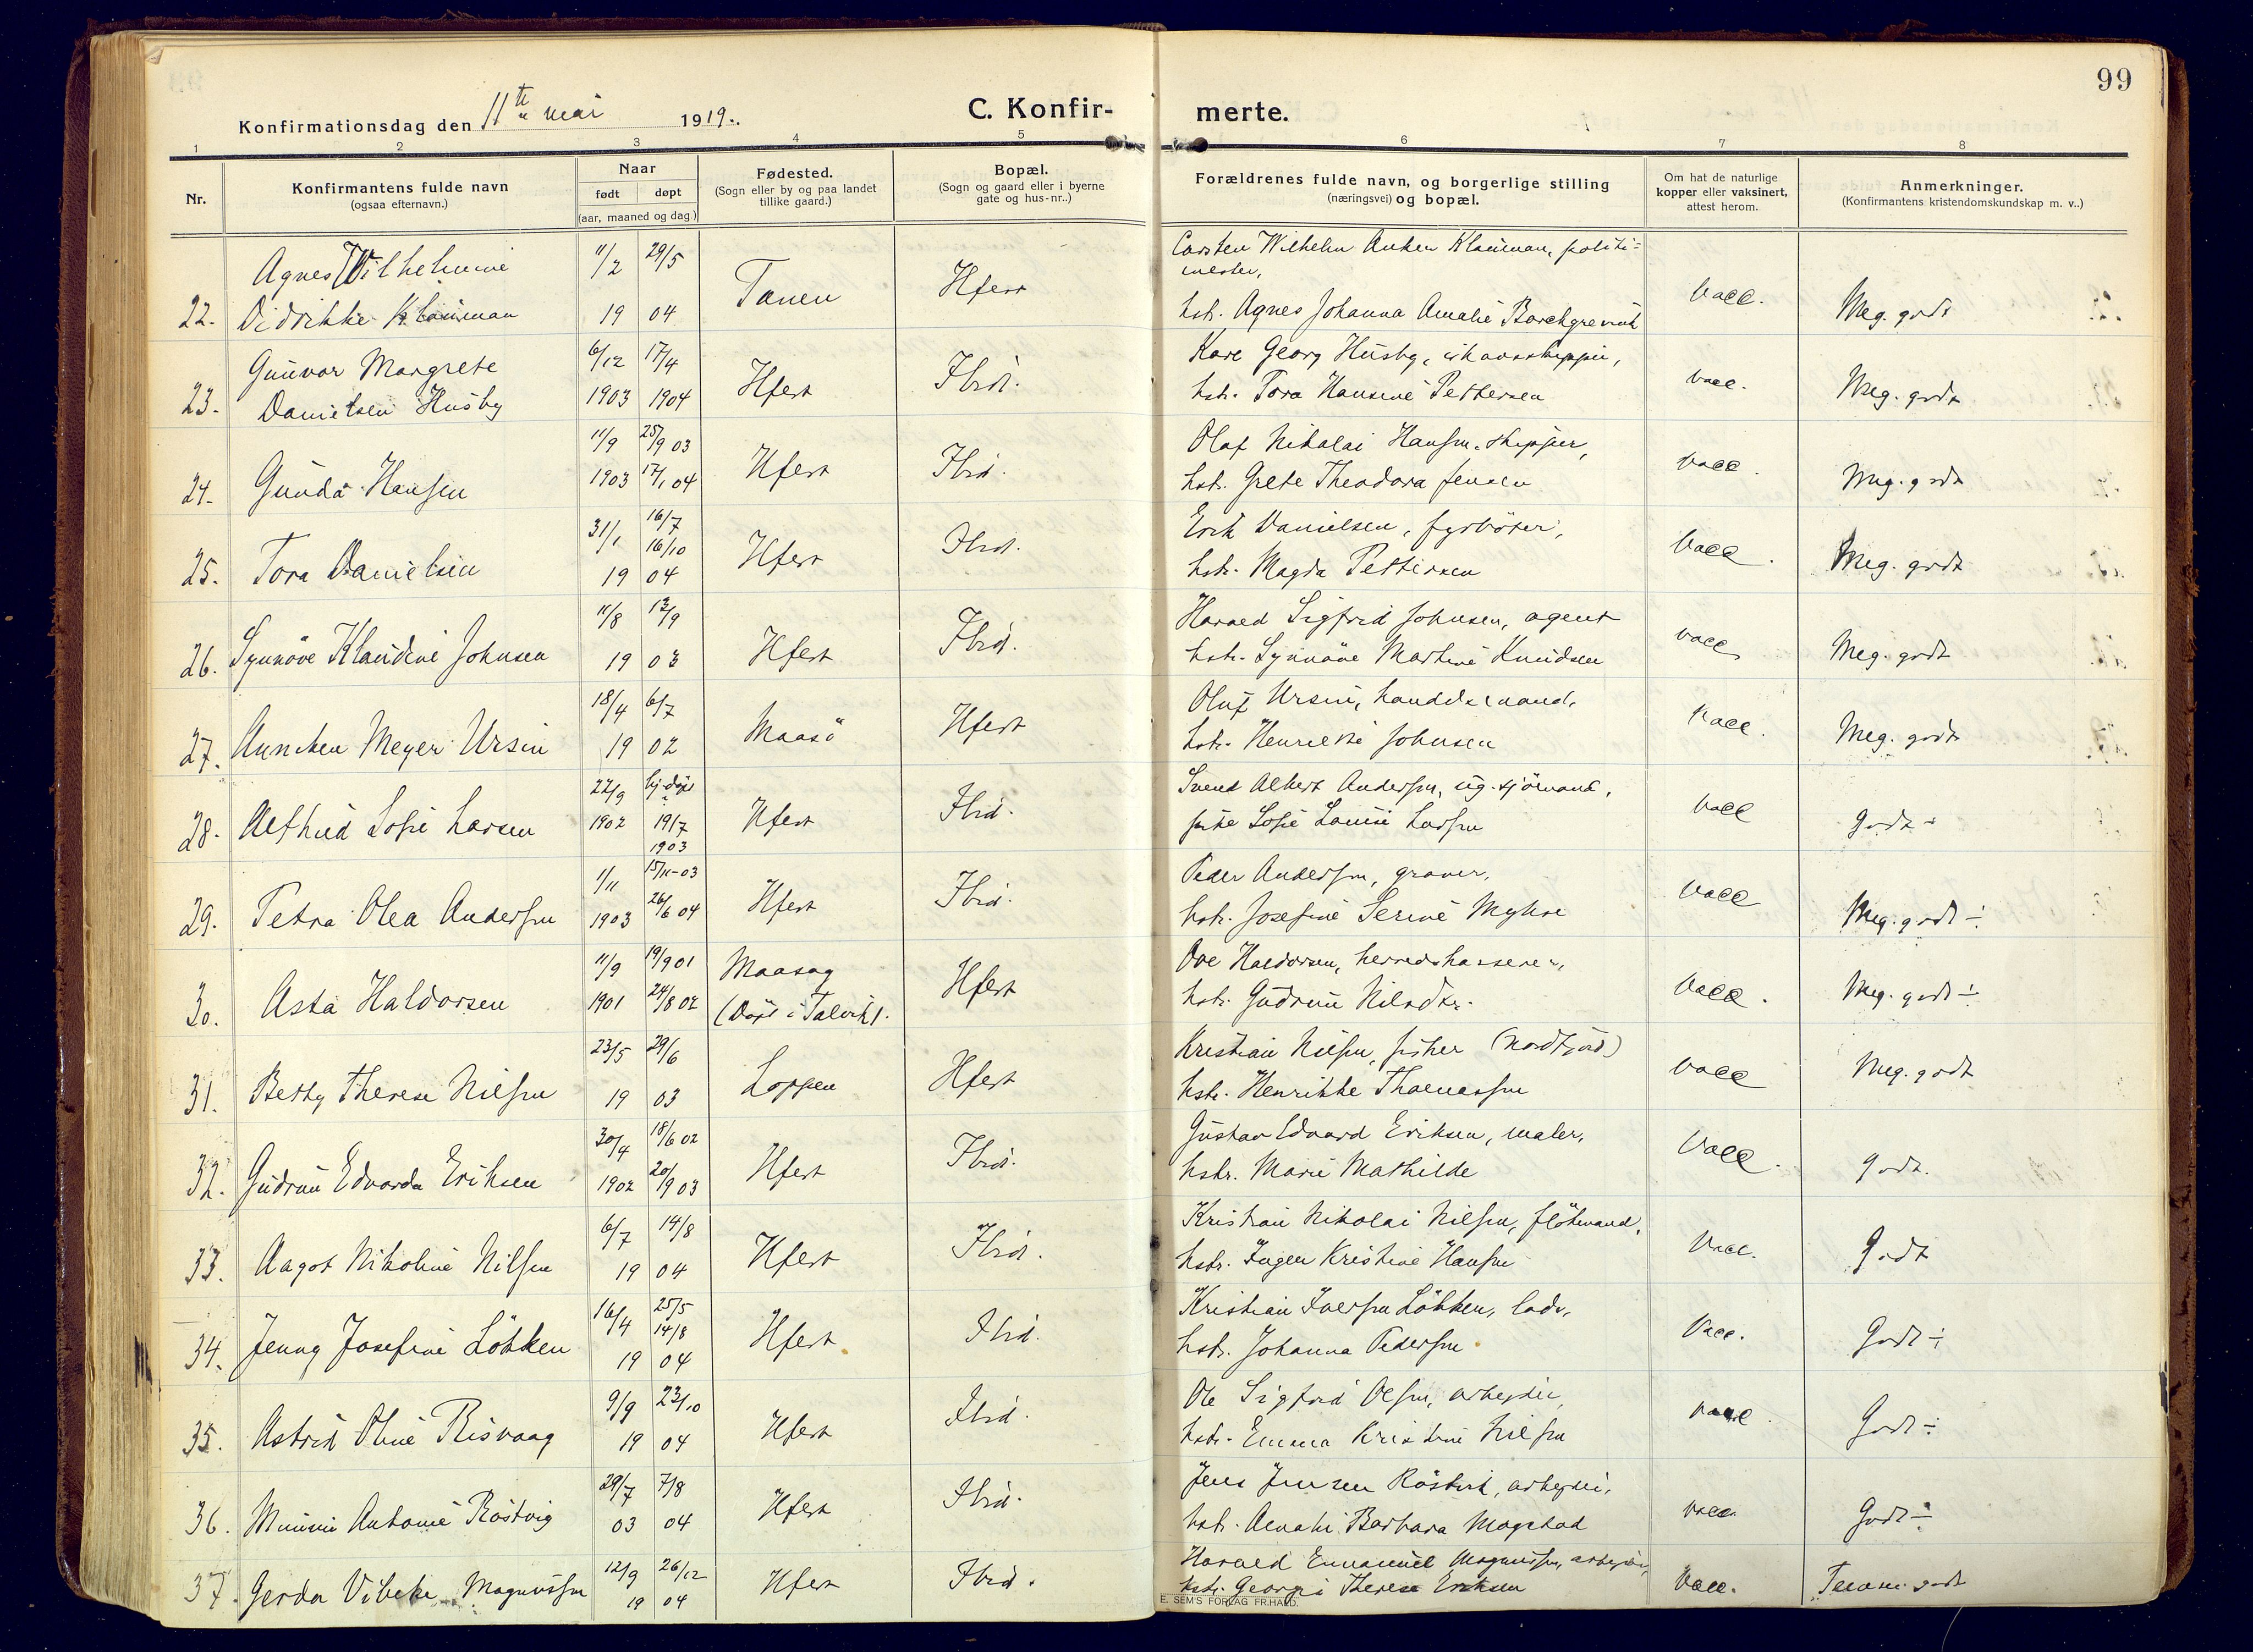 99
Konfirmationsdag den 11te mai 1919.
C. Konfirmerte.
1 2 3 4 5 6 7 8
Nr.
Konfirmantens fulde navn
(ogsaa efternavn.)
Naar
født døpt
(aar, maaned og dag.)
Fødested.
(Sogn eller by og paa landet
tillike gaard.)
Bopæl.
(Sogn og gaard eller i byerne
gate og hus-nr..)
Forældrenes fulde navn, og borgerlige stilling
(næringsvei) og bopæl.
Om hat de naturlige
kopper eller vaksinert,
attest herom.
Anmerkninger.
(Konfirmantens kristendomskundskap m. v..)
22. Agnes Wilhelmine
Didrikke Klauman
11/2 29/5
19 04
Tanen
Hfest
Carsten Wilhelm Anker Klauman, politi=
mester,
hstr. Agnes Johanna Amalie Borchgrevink
Vacc.
Meg. godt
23. Gunvor Margrete
Danielsen Husby
6/12 17/4
1903 1904
Hfest
Ibid.
Kare Georg Husby,
hstr. Tora Hansine Pettersen
Vacc.
Meg. godt
24. Gunda Hansen
11/9 25/9 03
1903 17/1 04
Hfest
Ibid.
Olaf Nikolai Hansen, skipper,
hstr. Grete Theodora Jensen
Vacc.
Meg. godt
25. Tora Danielsen
31/1 16/7
16/10
19 04
Hfest
Ibid.
Erik Danielsen, fyrbøter,
hstr. Magda Pettersen
Vacc.
Meg. godt
26. Synnöve Klaudine Johnsen
11/8 13/9
19 03
Hfest
Ibid.
Harald Sigfrid Johnsen, agent
hstr. Synnöve Martine Knudsen
Vacc.
Meg. godt
27. Anncken Meyer Ursin
18/4 6/7
19 02
Maasö
Hfest
Oluf Ursin, handelsmand,
hstr. Henrikke Johnsen
Vacc.
Meg. godt
28. Alfhild Sofie Larsen
22/9 hj. døpt
1902 19/7
1903
Hfest
Ibid.
Svend Albert Andersen, ug. sjömand,
pike Sofie Louise Larsen
Vacc
godt ÷
29. Petra Olea Andersen
1/11 15/11-03
1903 26/6 04
Hfest
Ibid.
Peder Andersen, graver,
hstr. Josefine Serine Myhre
Vacc
Meg. godt ÷
30. Asta Haldorsen
11/9 19/9 01
1901 24/8 02
Maasøy
(Døpt i Talvik).
Hfest
Ove Haldorsen, herredskasserer,
hstr. Gudrun Nilsdtr.
Vacc.
Meg. godt ÷
31. Betty Therese Nilsen
23/5 29/6
19 03
Loppen
Hfest
Kristian Nilsen, fisker (Nordfjord)
hstr. Henrikke Thomassen
Vacc
Meg. godt
32. Gudrun Edvarda Eriksen
30/4 18/6 02
1902 20/9 03
Hfest
Ibid.
Gustav Edvard Eriksen, maler,
hstr. Marie Mathilde
Vacc.
godt.
33. Aagot Nikoline Nilsen
6/7 14/8
19 04
Hfest
Ibid.
Kristian Nikolai Nilsen, flötmand,
hstr. Inger Kristine Hansen
Vacc.
Godt
34. Jenny Josefine Lökken
16/4 25/5
14/8
19 04
Hfest
Ibid.
Kristian Iversen Lökken, lods,
hstr. Johanna Pedersen
Vacc.
Godt ÷
35. Astrid Oline Risvaag
9/9 23/10
19 04
Hfest
Ibid.
Ole Sigfrid Olsen, arbeider,
hstr. Emma Kristine Nilsen
Vacc.
Godt ÷
36. Minnie Antonie Röstvig
29/7 7/8
03 04
Hfest
Ibid.
Jens Jensen Röstvik, arbeider,
hstr. Amalie Barbara Mogstad
Vacc.
Godt ÷
37. Gerda Vibeke Magnussen
12/9 26/12
19 04
Hfest
Ibid.
Harald Emmanuel Magnussen, arbeider,
hstr. Georgie Therese Eriksen
Vacc.
godt
E. SEM'S FORLAG FR.HALD.